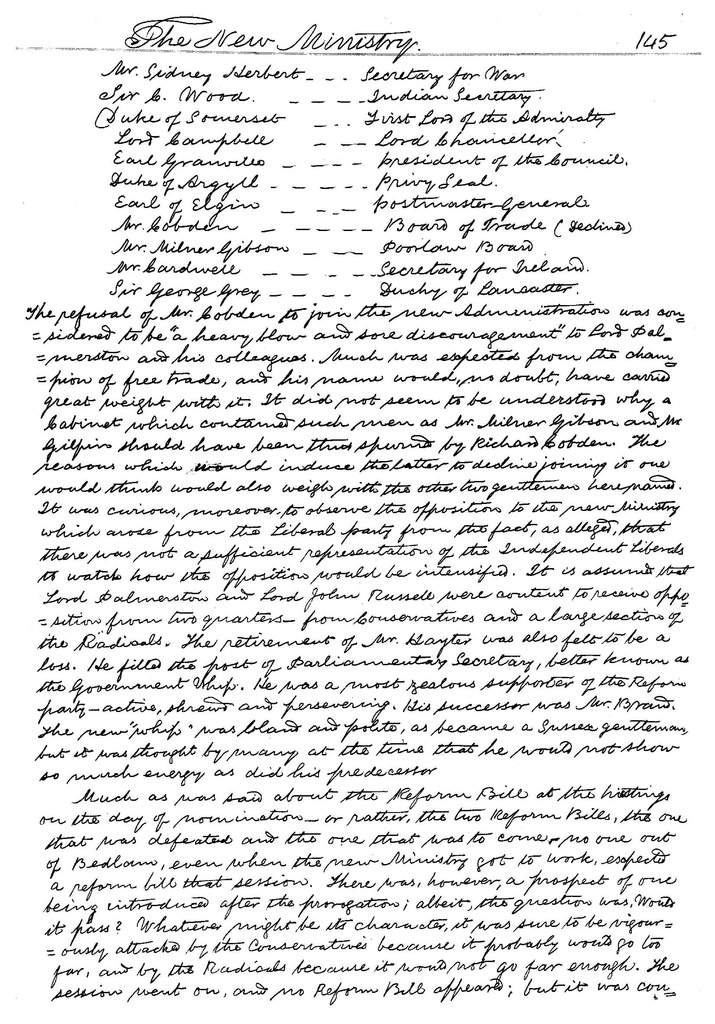 The New Ministry. 145
Mr. Sidney Herbert - - - Secretary for War
Sir C. Wood. - - - - Indian Secretary.
(Duke of Somerset - - - First Lord of the Admiralty
Lord Campbell - - - Lord Chancellor.
Earl Granville - - - - President of the Council.
Duke of Argyll - - - - Privy Seal.
Earl of Elgin - - - - Postmaster-General
Mr. Cobden - - - - - Board of Trade (Declined)
Mr. Milner Gibson - - - - Poorlaw Board
Mr. Cardwell - - - - Secretary for Ireland.
Sir George Grey - - - - Duchy of Lancaster.
The refusal of Mr. Cobden to join the new Administration was con=
=sidered to be "a heavy blow and sore discouragement" to Lord Pal=
=merston and his colleagues. Much was expected from the cham=
=pion of free trade, and his name would, no doubt, have carried
great weight with it. It did not seem to be understood why a
Cabinet which contained such men as Mr. Milner Gibson and Mr
Gilpin should have been thus spurned by Richard Cobden. The
reasons which would induce the latter to decline joining it one
would think would also weigh with the other two gentlemen here named.
It was curious, moreover, to observe the opposition to the new Ministry
which arose from the Liberal party from the fact, as alleged, that
there was not a sufficient representation of the Independent Liberals
to watch how the opposition would be intensified. It is assumed that
Lord Palmerston and Lord John Russell were content to receive oppo
=sition from two quarters - from Conservatives and a large section of
the Radicals. The retirement of Mr. Hayter was also felt to be a
loss. He filled the post of Parliamentary Secretary, better known as
the Government Whip. He was a most zealous supporter of the Reform
party - active, shrewd and persevering. His successor was Mr. Brand.
The new "whip" was bland and polite, as became a Sussex gentleman,
but it was thought by many at the time that he would not show
so much energy as did his predecessor
Much as was said about the Reform Bill at the hustings
on the day of nomination - or rather, the two Reform Bills, the one
that was defeated and the one that was to come, - no one out
of Bedlam, even when the new Ministry got to work, expected
a reform bill that session. There was, however, a prospect of one
being introduced after the prorogation; albeit, the question was, Would
it pass? Whatever might be its character, it was sure to be vigour=
=ously attacked by the Conservatives because it probably would go too
far, and by the Radicals because it would not go far enough. The
session went on, and no Reform Bill appeared; but it was con=